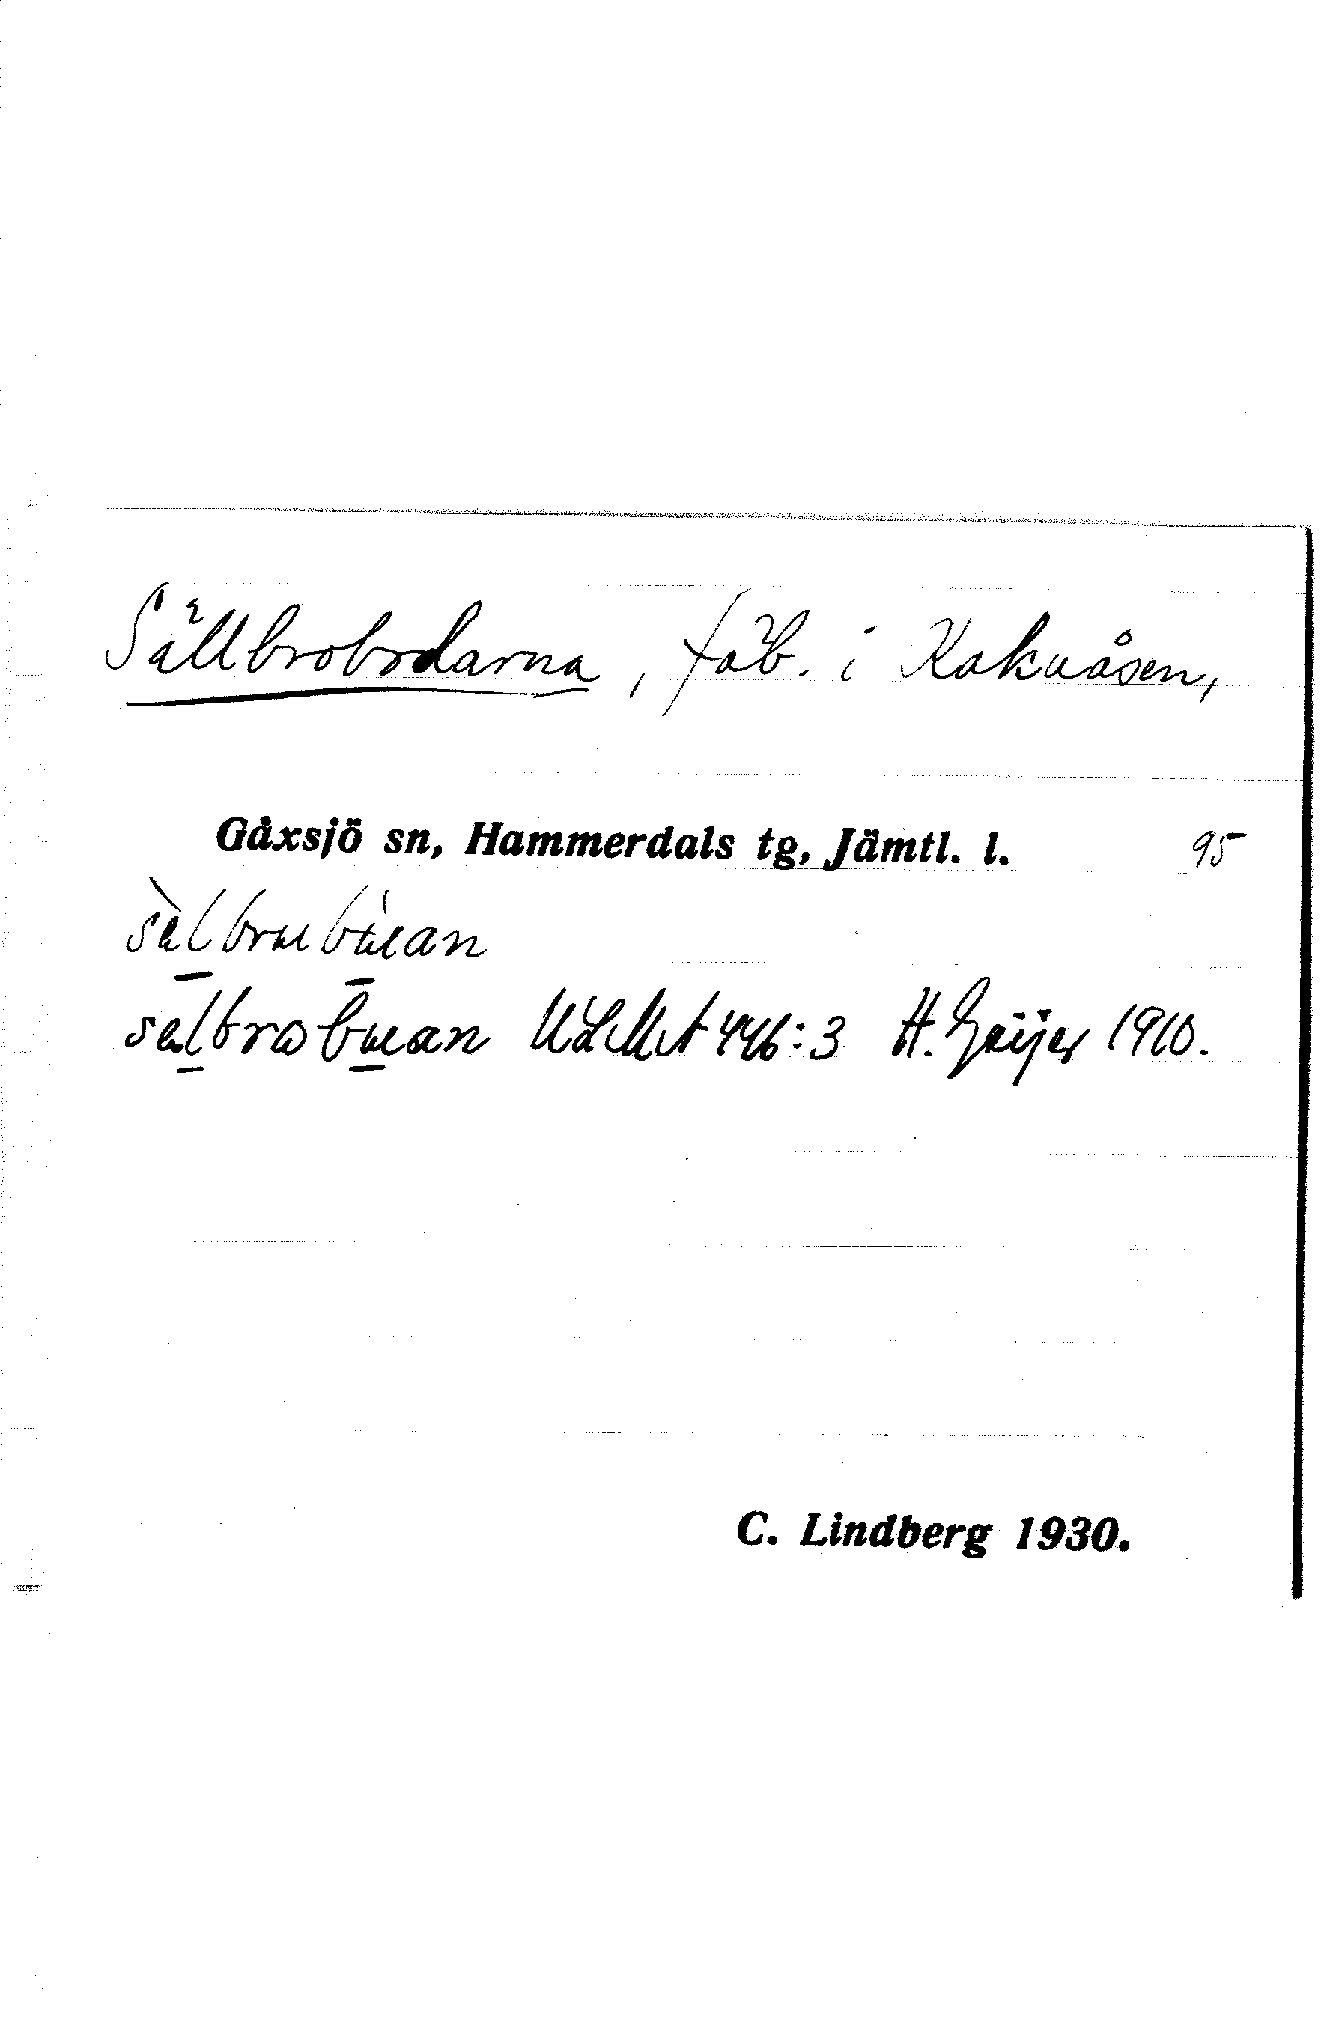 Sällbrobodarna, fäb. i Kakuåsen,
Gåxsjö sn, Hammerdals tg, Jämtl. l. 95
ULMA 446:3 H. Geijer 1910.
C. Lindberg 1930.